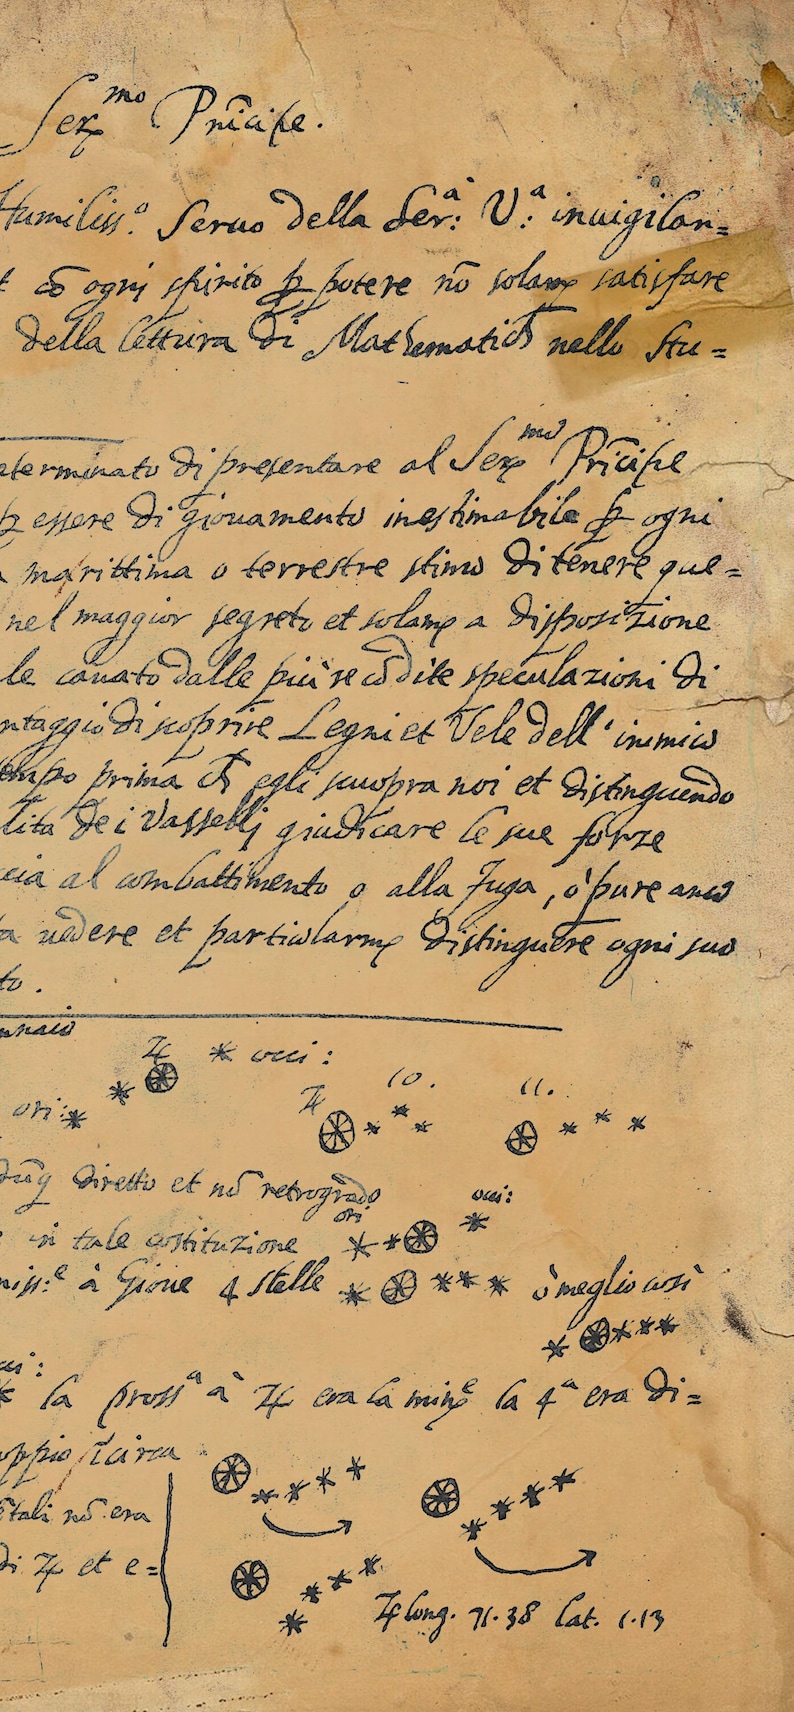 Ser.mo Prīcipe.
Humiliss.º Seruo della Ser:ª V:ª inuigilan=
et cō ogni spirito p potere nō solamᵉ satisfare
della lettura di Mathematicħ nello stu=
eterminato di presentare al Ser.mo Prīcipe
p essere di giouamento inestimabile p ogni
marittima o terrestre stimo di tenere que=
nel maggior segreto et solamᵉ a disposizione
le cauato dalle più recōdite speculazioni di
ntaggio di scoprire Legni et Vele dell'inimico
empo prima cħ egli scuopra noi et distinguendo
lita dei Vasselli giudicare le sue forze
ccia al combattimento o alla fuga, o pure anco
ta uedere et particularmᵉ distinguere ogni suo
to.
nnaio
♃ * occi:
ori: * *
♃ 10. 11.
dūq diretto et nō retrogrado
ori. occi:
in tale costituzione
niss:ᵉ à Gioue 4 stelle ò meglio così
occi:
* la prossª à ♃ era la minᵉ la 4ª era di=
oppio ī circa
ētali nō era
di ♃ et e=
♃ long. 71.38 lat. 1.13